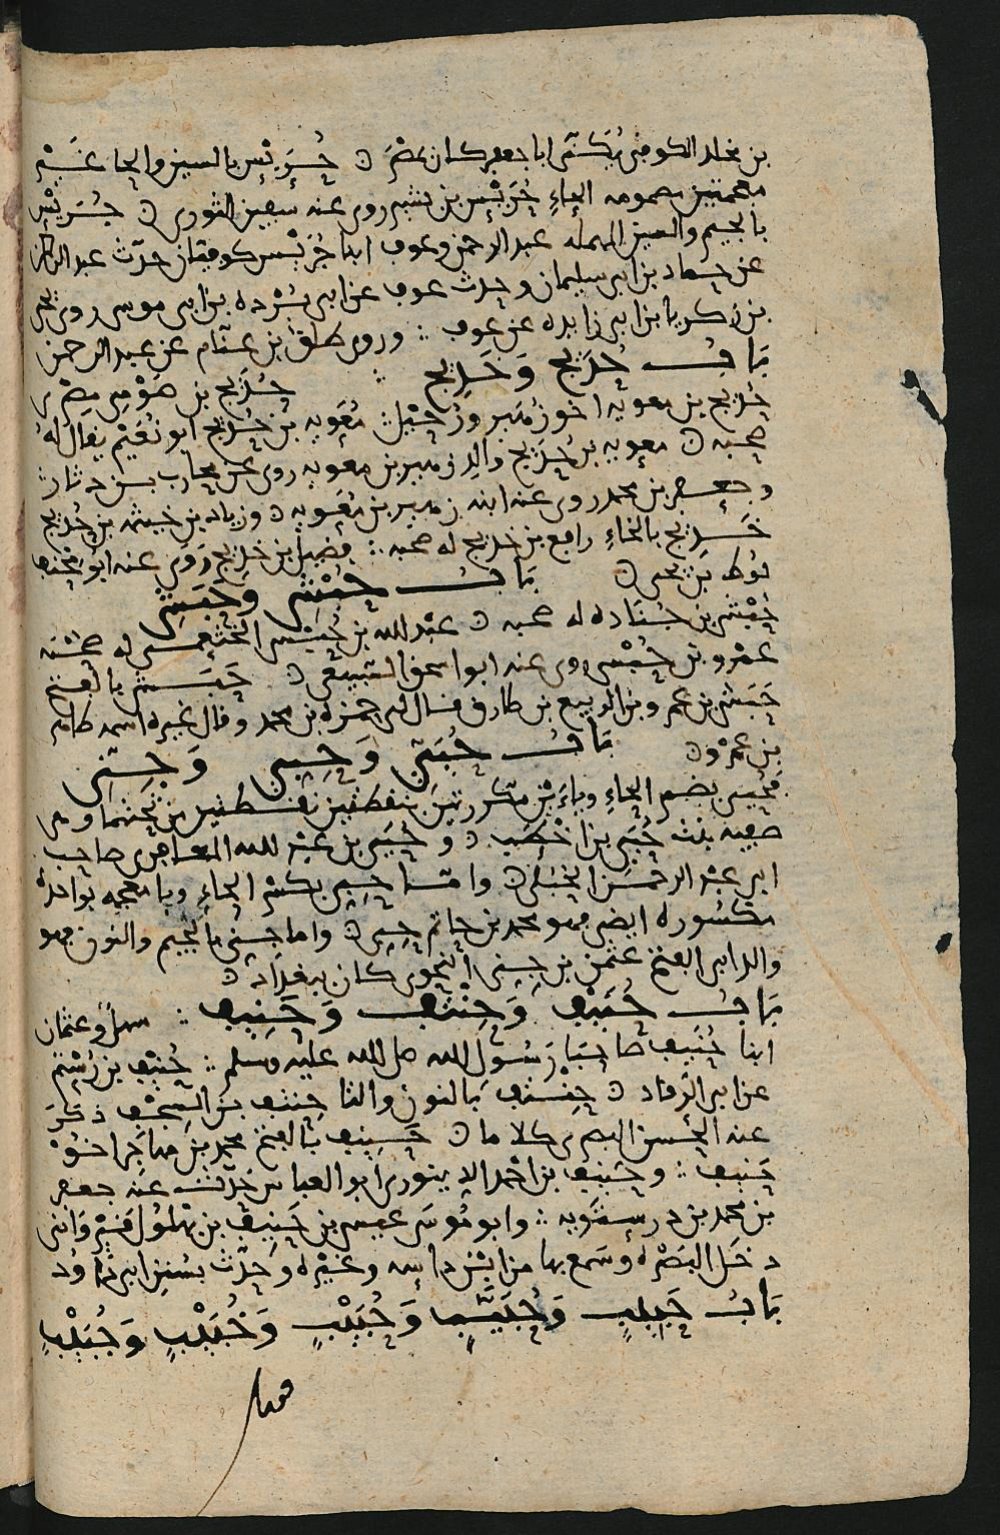 بن مخلد الكوفي يُكَنّى ابا جعفر كان بمصْر ○ حُرَيْس بالسين والحا غَيْر
معجمتين مضمومه الحاءِ حُرَيْس بن بشير روى عنه سفين الثورى ○ جُرَيْس
بالجيم والسين المهمله عبد الرحمن وعوف ابنا جُرَيْس كوفيّان حدّث عبد الرحمن
عن حماد بن ابى سليمان وحدث عوف عن ابى بُرْده بن ابى موسى روى يحيى
بن زكريا بن ابى زايده عن عوف ؞ وروى طلق بن غنّام عن عبد الرحمن
بَابُ حُدَيْج وَخَدِيج ؞ حُدَيْج بن صَوْمِى مِصْرى
حُدَيْج بن معويه اخو زُهَير ورُحَيْل ؞ مُعَويه بْن حُدَيْج ابو نُعَيْم يقال لهُ
صحبه ○ معويه بن حُدَيْج والد زهير بن معويه روى عن محارب بن دثار
وجعفر بن محمد روى عنه ابنه زهير بن مُعَويه ○ وزياد بن خيثمه بن حُدَيْج
خَدِيج بالخاءِ رافع بن خديج له صحبه ؞ فضيل بن خَدِيج رَوَى عنه ابو مخنف
لوط بن يحيى ○ بَابُ حُبْشِى وحَبَشِى
حُبْشى بن جُنَاده له صحبه ○ عبْد الله بن حُبْشِى الخثعمى له صُحْبَه
عمْرو بن حُبْشى روى عنه ابو اسحق السَّبِيعى ○ حَبَشى بالفتح
حَبَشى بن عمرو بن الربيع بن طارق قال لى حمزه بن محمد وقال غيره اسمه طاهر
بن عَمْرو ○ بَابُ حُيَىّ وَحِبِى وَجِنّى
فحُيى بضم الحاءِ وياءَيْن مكررتين بنقطتين نقطتين من تحتهما وهى
صفيه بنت حُيَى بن اخْطَب ○ وحُيَى بن عبْد الله المعافرى صاحب
ابى عبْد الرحمٰن الحُبُلى ○ وامّا حِبِى بكسْر الحاءِ وبا معجمه بواحدة
مكسوره ايضى فهو محمد بن حاتم حِبِى ○ واما جِنى بالجيم والنون فهو
والد ابى الفتح عثمٰن بن جِنى النحوى كان ببغداد ○
بَابُ حُنَيْف وَحِنْتَف وَحَنِيف ؞ سهل وعثمان
ابنا حُنَيْف صاحبَا رَسُول الله صلى الله عليْه وسلم ؞ حُنَيْف بن رُسْتم
عن ابى الرُقاد ○ حِنْتف بالنون والتا حِنتف بن السِجْف ذكرَ
عنه الحَسن البصرى كلاما ○ حَنِيف بالفتح محمد بن مهاجر اخُوْ
حَنيف ؞ وحَنيف بن احْمد الدينورى ابو العباس حَدّث عنه جعفر
بن محمد بن درستويه ؞ وابو مُوسَى عيسى بن حَنيف بن بهلول قيْروَانى
دخَل البَصْره وسَمع بها من ابْن داسه وغيْره وحَدّث بسُنن ابى داوُد
بَابُ حَبيبٍ وَحُبَيّبٍ وَحُبَيْبٍ وَخُبَيْبٍ وَجُبَيْبٍ